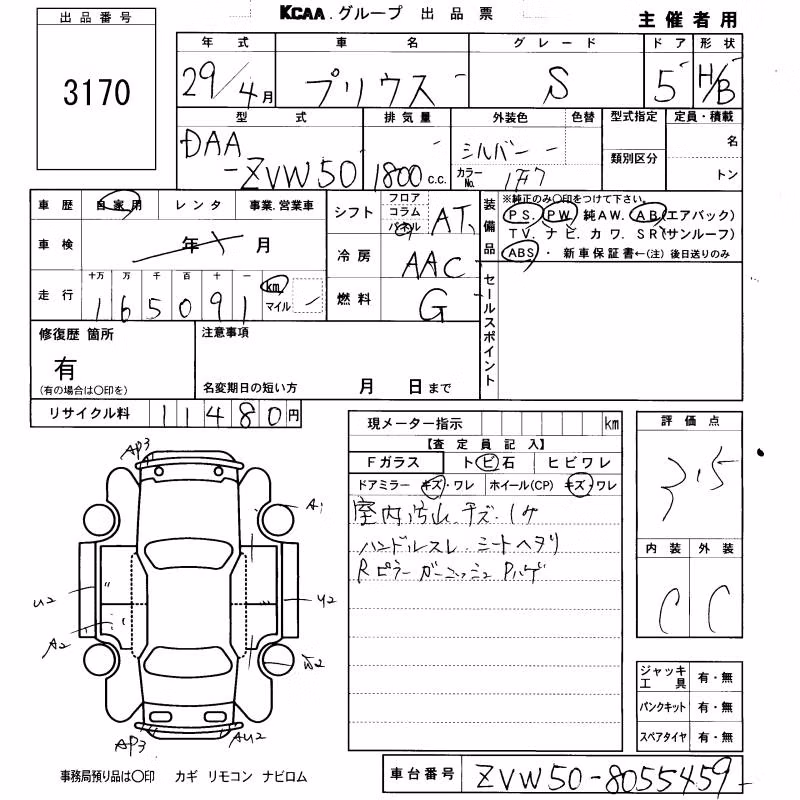 KCAA.グループ 出品票
主催者用
出品番号
3170
年式 車名 グレード ドア 形状
29/4月 プリウス S 5 H/B
型式 排気量 外装色 色替 型式指定 定員・積載
DAA-ZVW50 1800c.c. シルバー カラーNo. 1F7 類別区分 名
トン
車歴 自家用 レンタ 事業.営業車
車検 年 月
走行 十万 万 千 百 十 一
165091 km マイル
シフト フロア コラム パネル AT
冷房 AAC
燃料 G
装備品 ※純正のみ○印をつけて下さい。
PS. PW. 純AW. AB(エアバック)
TV. ナビ. カワ. SR(サンルーフ)
ABS・ 新車保証書←(注) 後日送りのみ
セールスポイント
修復歴 箇所
有
(有の場合は○印を)
注意事項
名変期日の短い方 月 日まで
リサイクル料 11480円
現メーター指示 km
【査定員記入】
Fガラス トビ石 ヒビワレ
ドアミラー キズ・ワレ ホイール(CP) キズ・ワレ
室内汚れ.キズ.コゲ
ハンドルスレ シートヘタリ
Rピラーガーニッシュ Pハゲ
評価点
3.5
内装 外装
C C
ジャッキ工具 有・無
パンクキット 有・無
スペアタイヤ 有・無
AP3
A1
U2
U2
A2
W2
AP3
AU2
事務局預り品は○印 カギ リモコン ナビロム
車台番号 ZVW50-8055459